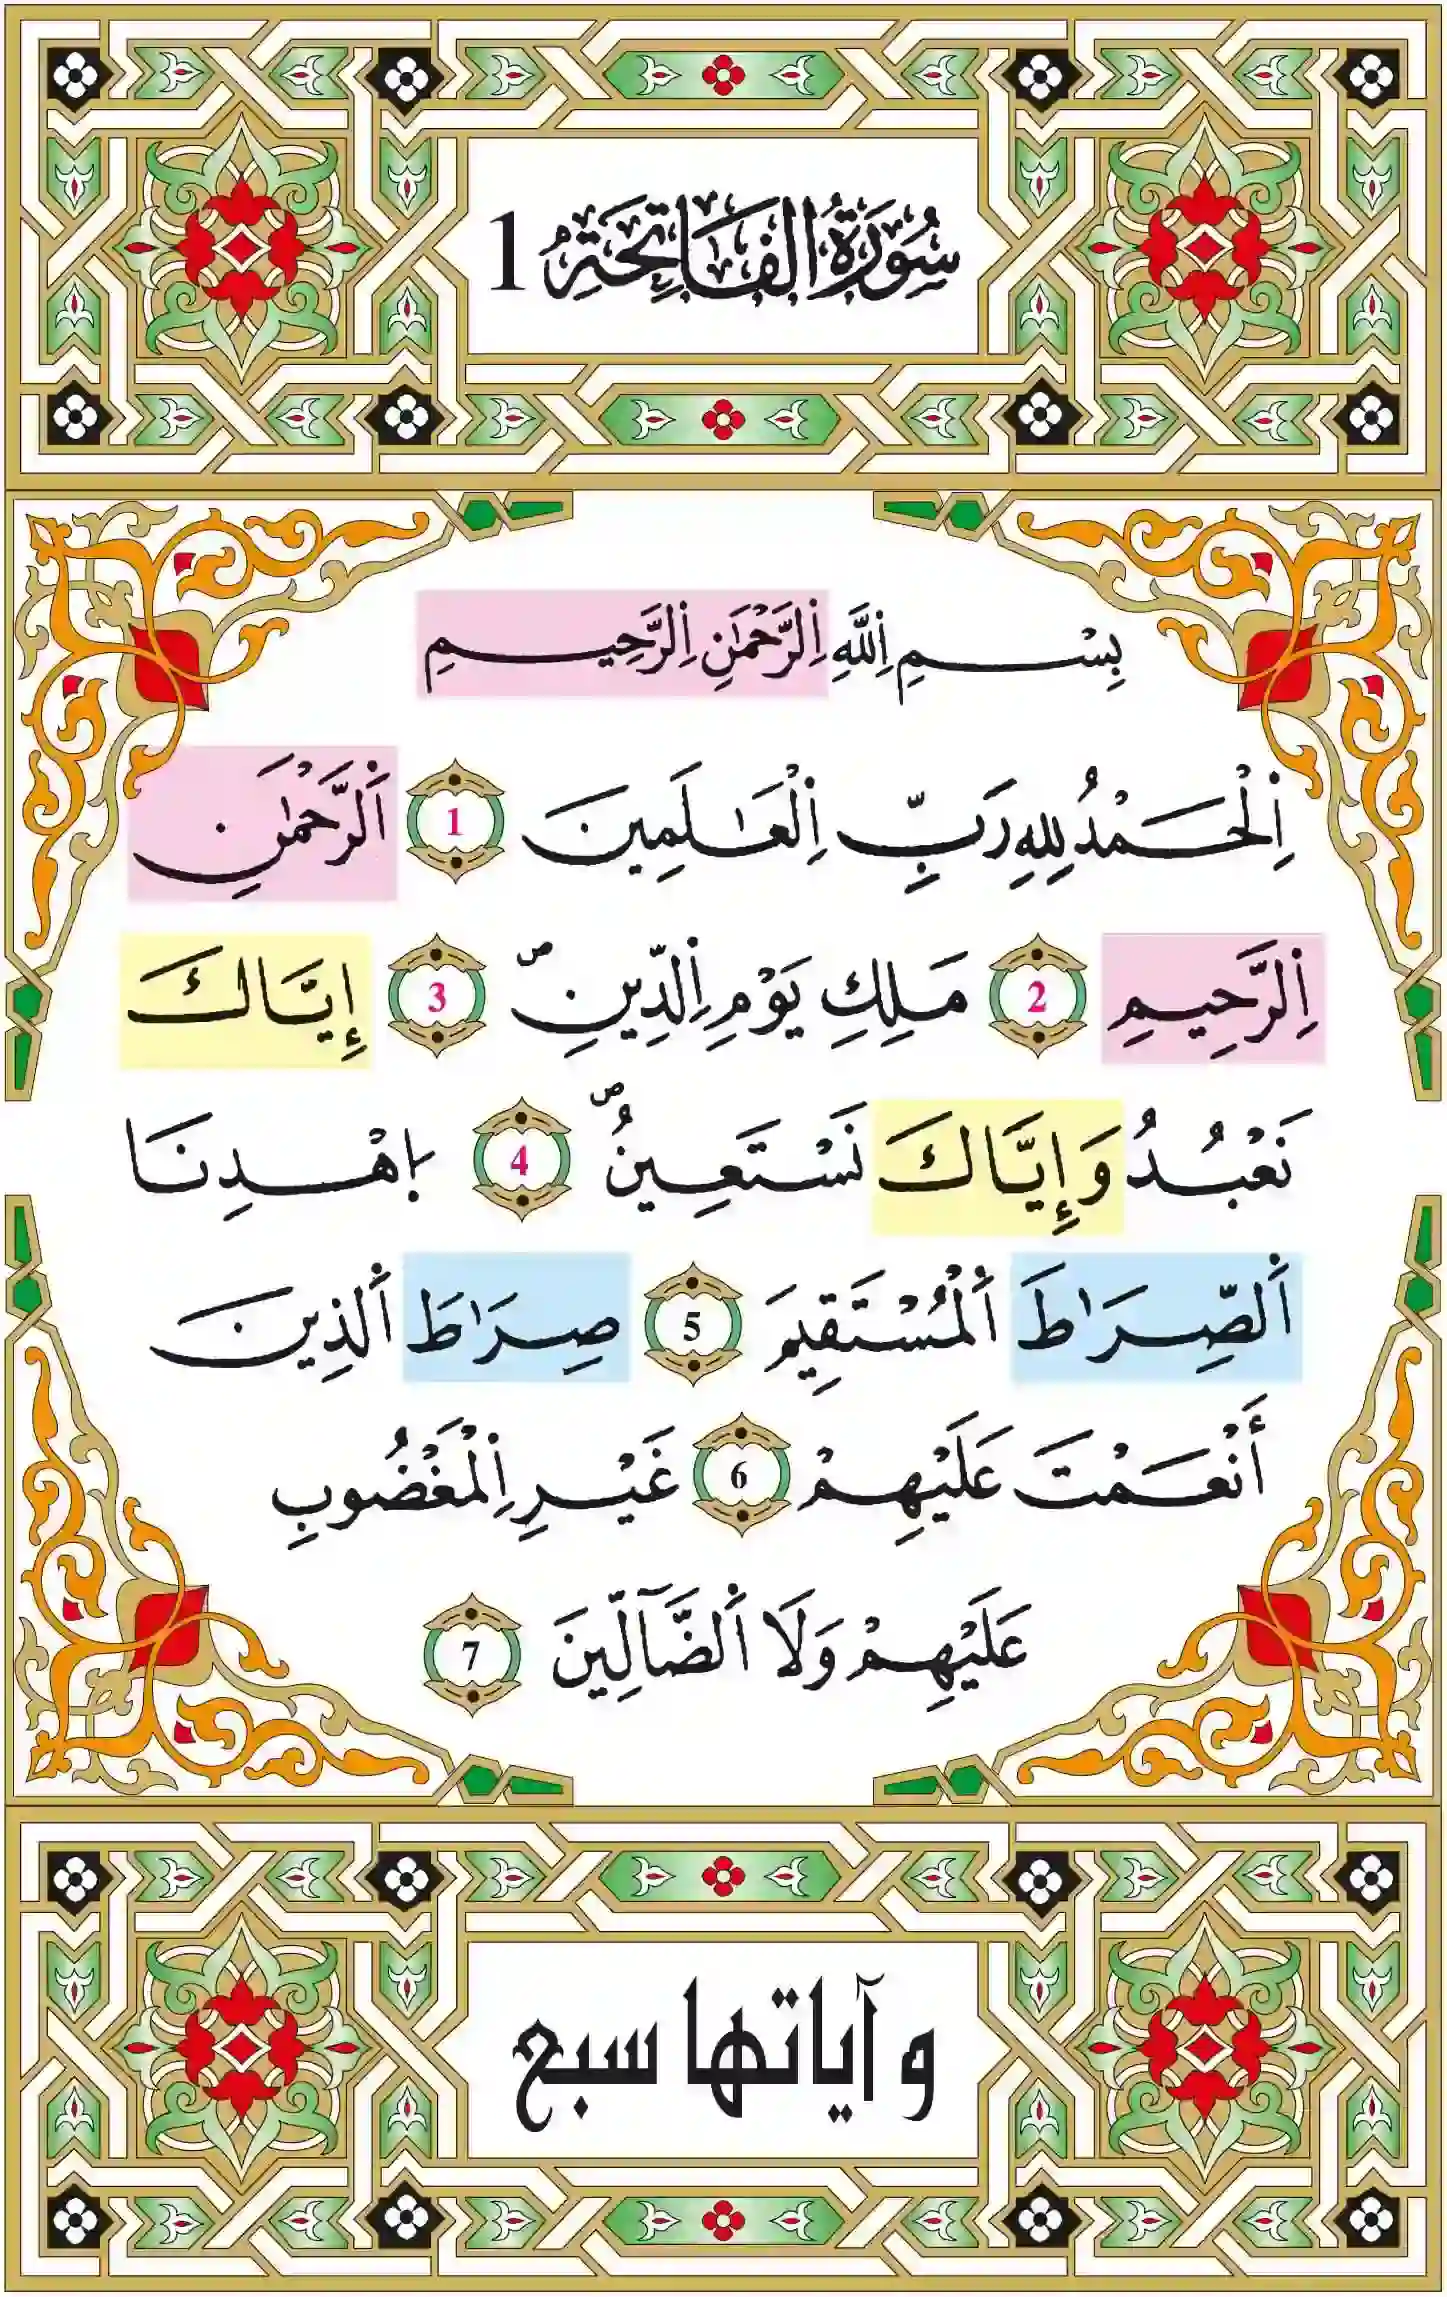 سُورَةُ الفَاتِحَةِ 1
بِسْمِ اِ۬للَّهِ اِ۬لرَّحْمَٰنِ اِ۬لرَّحِيمِ
اِ۬لْحَمْدُ لِلهِ رَبِّ اِ۬لْعَٰلَمِينَ 1 اَ۬لرَّحْمَٰنِ
اِ۬لرَّحِيمِ 2 مَلِكِ يَوْمِ اِ۬لدِّينِۖ 3 إِيَّاكَ
نَعْبُدُ وَإِيَّاكَ نَسْتَعِينُۖ 4 اِ۪هْدِنَا
اَ۬لصِّرَٰطَ اَ۬لْمُسْتَقِيمَ 5 صِرَٰطَ اَ۬لذِينَ
أَنْعَمْتَ عَلَيْهِمْ 6 غَيْرِ اِ۬لْمَغْضُوبِ
عَلَيْهِمْ وَلَا اَ۬لضَّآلِّينَ 7
و آياتها سبع